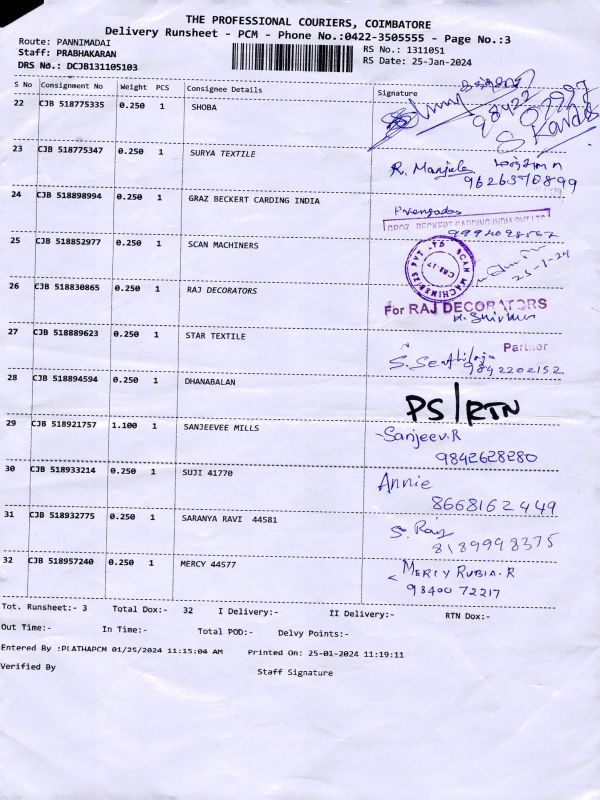 THE PROFESSIONAL COURIERS, COIMBATORE
Delivery Runsheet - PCM - Phone No.:0422-3505555 - Page No.:3
Route: PANNIMADAI
RS No.: 1311051
Staff: PRABHAKARAN
RS Date: 25-Jan-2024
DRS No.: DCJB131105103
S No Consignment No Weight PCS Consignee Details Signature
22 CJB 518775335 0.250 1 SHOBA
23 CJB 518775347 0.250 1 SURYA TEXTILE
R. Manjula
9626370899
24 CJB 518898994 0.250 1 GRAZ BECKERT CARDING INDIA
GROZ BECKERT CARDING INDIA PVT LTD
25 CJB 518852977 0.250 1 SCAN MACHINERS
SCAN MACHINERIES PVT LTD
CBE-17
25-1-24
26 CJB 518830865 0.250 1 RAJ DECORATORS
For RAJ DECORATORS
Partner
27 CJB 518889623 0.250 1 STAR TEXTILE
9842202152
28 CJB 518894594 0.250 1 DHANABALAN
PS/RTN
29 CJB 518921757 1.100 1 SANJEEVEE MILLS
Sanjeev.R
9842628280
30 CJB 518933214 0.250 1 SUJI 41770
Annie
8668162449
31 CJB 518932775 0.250 1 SARANYA RAVI 44581
8189998375
32 CJB 518957240 0.250 1 MERCY 44577
MERCY RUBIA.R
98400 72217
Tot. Runsheet:- 3 Total Dox:- 32 I Delivery:- II Delivery:- RTN Dox:-
Out Time:- In Time:- Total POD:- Delvy Points:-
Entered By :PLATHAPCM 01/25/2024 11:15:04 AM Printed On: 25-01-2024 11:19:11
Verified By Staff Signature